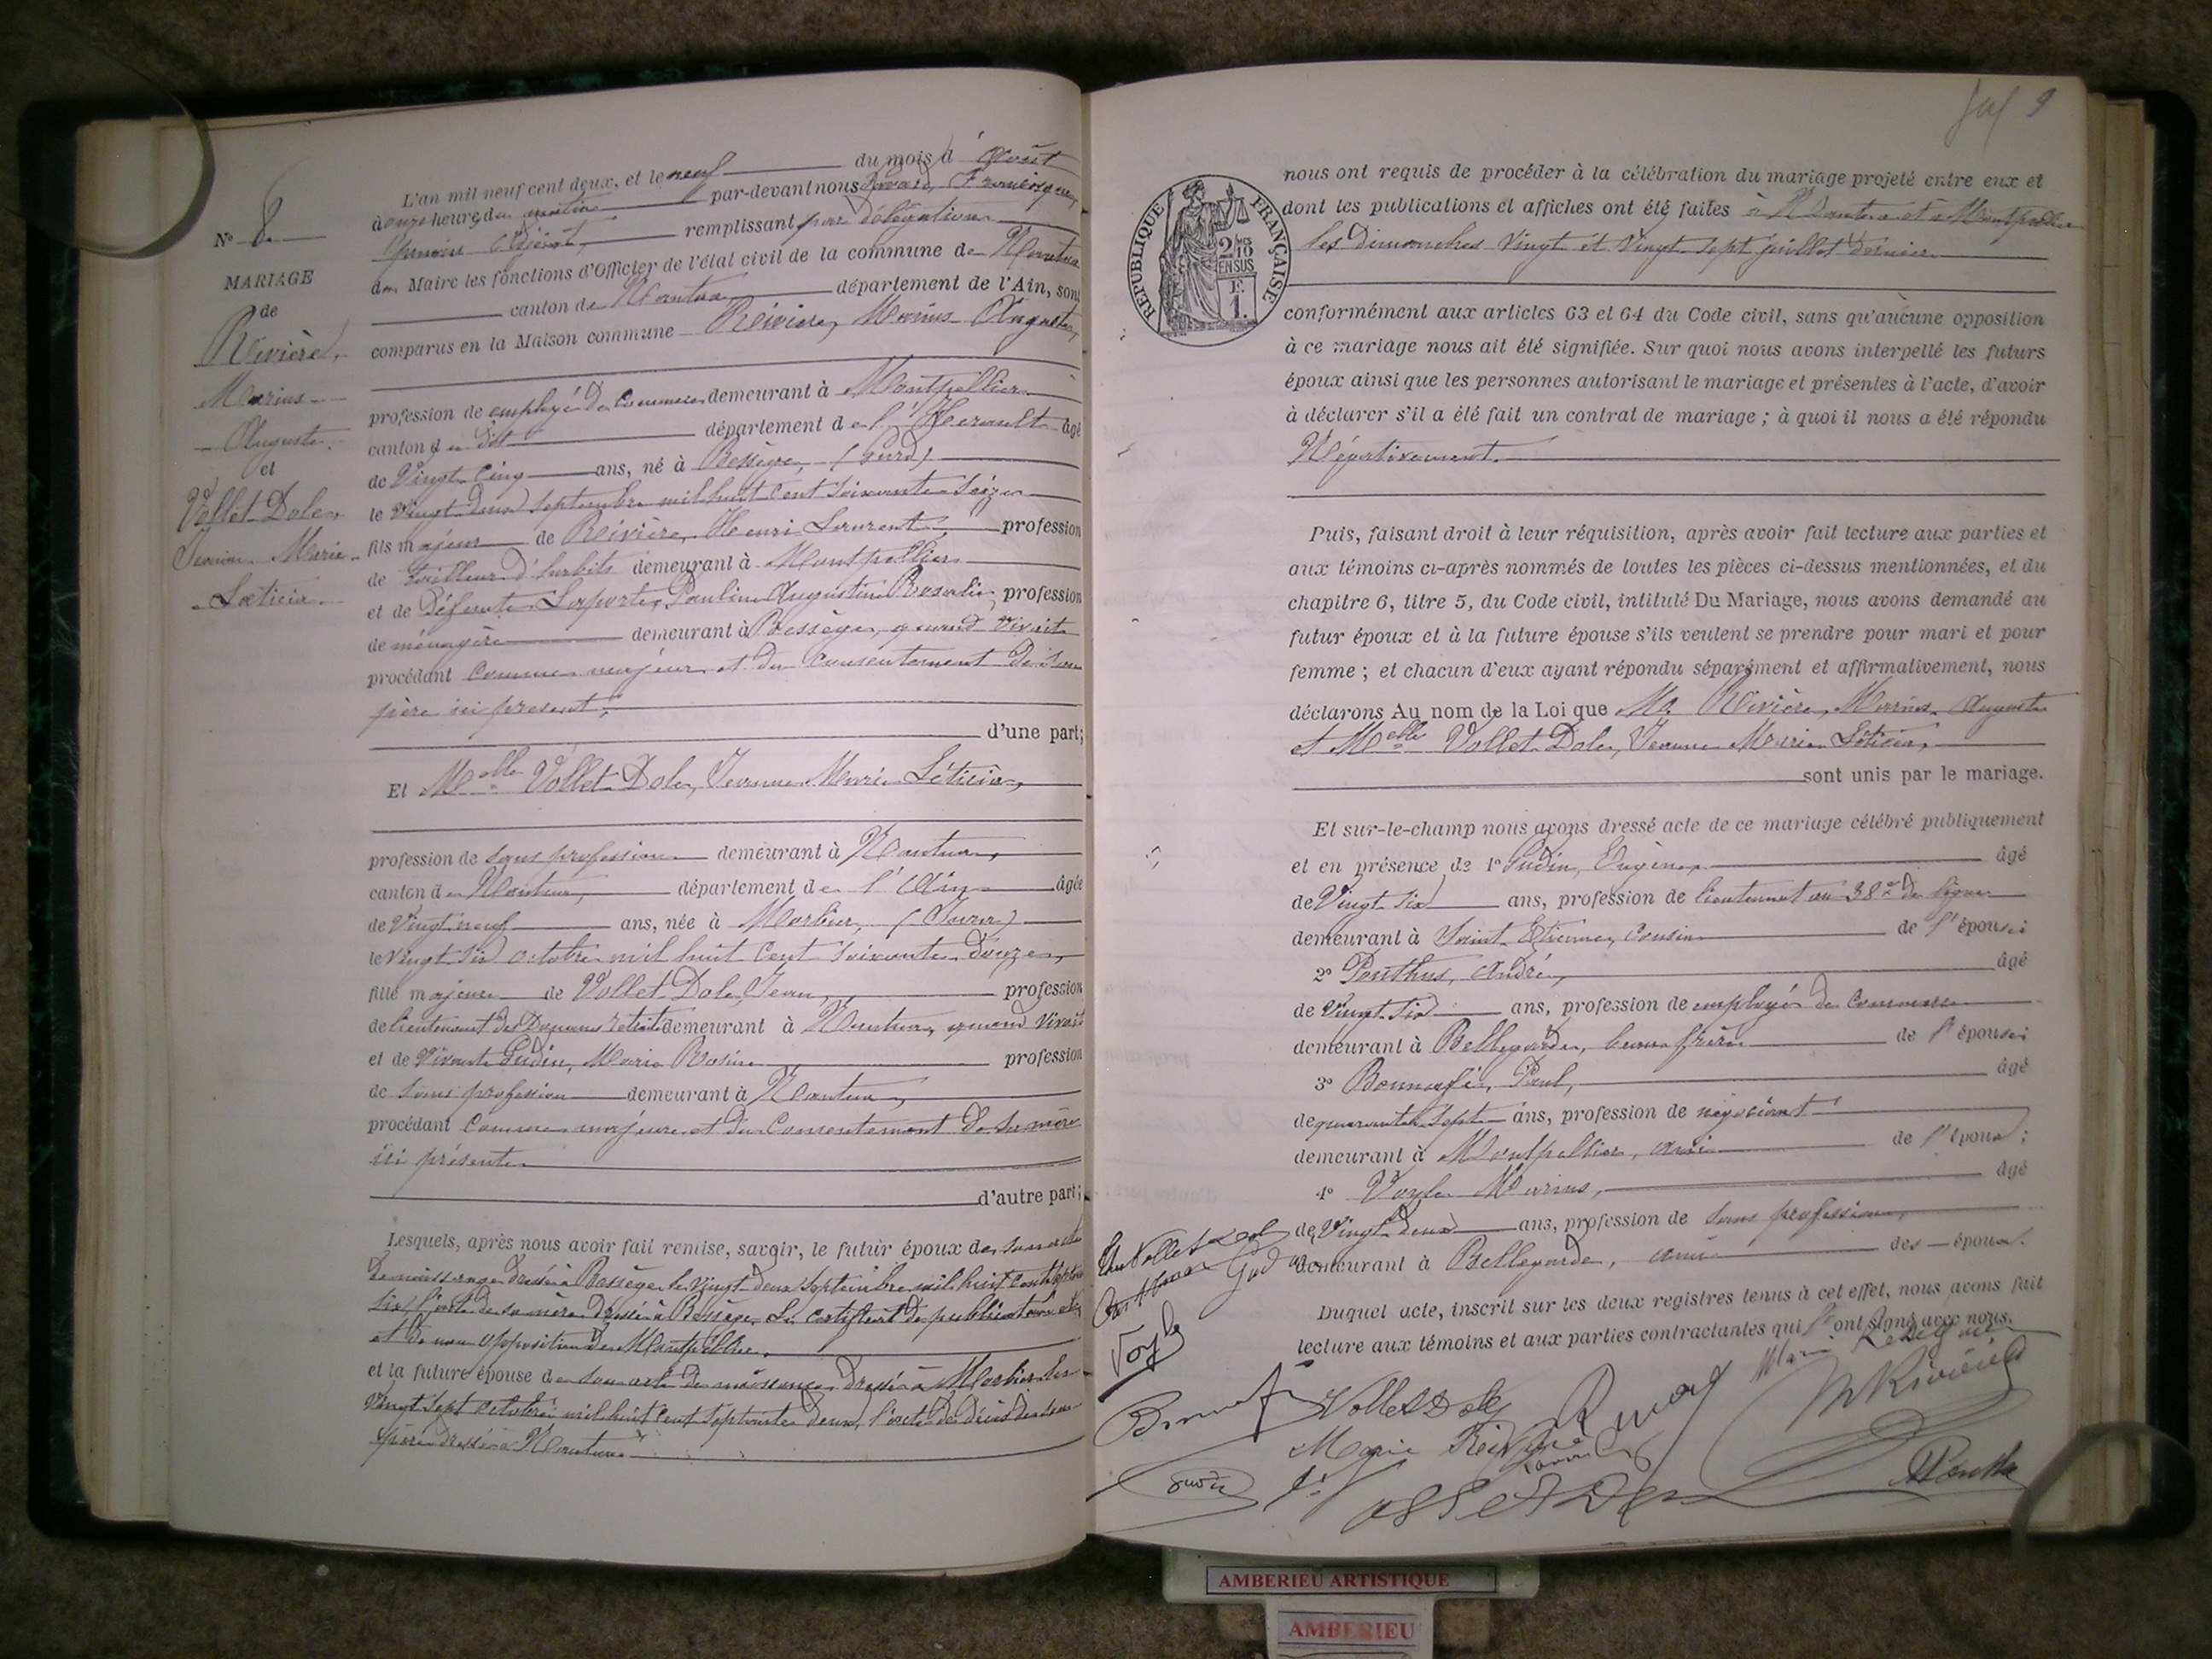 N° 8
MARIAGE
de
Rivière,
Marius
Auguste
et
Vollet-Dole,
Jeanne Marie
Laeticia
L'an mil neuf cent deux, et le neuf du mois d'Août
à onze heures du matin par-devant nous Francisque,
premier Adjoint, remplissant par délégation
du Maire les fonctions d'Officier de l'état civil de la commune de Nantua
canton de Nantua département de l'Ain, sont
comparus en la Maison commune Rivière, Marius Auguste,
profession de employé de Commerce demeurant à Montpellier
canton du dit département de l'Hérault âgé
de Vingt-cinq ans, né à Bessèges, (Gard)
le Vingt deux septembre mil huit cent soixante-seize
fils majeur de Rivière, Henri Laurent, profession
de tailleur d'habits demeurant à Montpellier
et de Défunte Laporte, Pauline Augustine Rosalie, profession
de ménagère demeurant à Bessèges, quand vivait
procédant comme majeur et du consentement de son
père ici présent,
d'une part;
Et Melle Vollet-Dole, Jeanne Marie Léticia,
profession de sans profession demeurant à Nantua,
canton de Nantua, département de l'Ain âgée
de Vingt neuf ans, née à Morbier, (Jura)
le vingt six octobre mil huit cent soixante-douze,
fille majeure de Vollet-Dole, Jean, profession
de lieutenant des Douanes retraité demeurant à Nantua, quand vivait
et de Vivante Gudin, Marie Rosine profession
de sans profession demeurant à Nantua,
procédant comme majeure et du consentement de sa mère
ici présente
d'autre part;
Lesquels, après nous avoir fait remise, savoir, le futur époux de son acte
de naissance dressé à Bessèges le vingt deux septembre mil huit cent septante
six, l'acte de sa mère dressé à Bessèges, le certificat de publication
et de non opposition de Montpellier,
et la future épouse de son acte de naissance dressé à Morbier le
vingt sept octobre mil huit cent septante deux, l'acte de décès de son
père dressé à Nantua
9
RÉPUBLIQUE FRANÇAISE
2/10
EN SUS
F.
1.
nous ont requis de procéder à la célébration du mariage projeté entre eux et
dont les publications et affiches ont été faites à Nantua et à Montpellier
les dimanches vingt et vingt sept juillet dernier
conformément aux articles 63 et 64 du Code civil, sans qu'aucune opposition
à ce mariage nous ait été signifiée. Sur quoi nous avons interpellé les futurs
époux ainsi que les personnes autorisant le mariage et présentes à l'acte, d'avoir
à déclarer s'il a été fait un contrat de mariage ; à quoi il nous a été répondu
Négativement.
Puis, faisant droit à leur réquisition, après avoir fait lecture aux parties et
aux témoins ci-après nommés de toutes les pièces ci-dessus mentionnées, et du
chapitre 6, titre 5, du Code civil, intitulé Du Mariage, nous avons demandé au
futur époux et à la future épouse s'ils veulent se prendre pour mari et pour
femme ; et chacun d'eux ayant répondu séparément et affirmativement, nous
déclarons Au nom de la Loi que Mr Rivière, Marius Auguste
et Melle Vollet-Dole, Jeanne Marie Léticia,
sont unis par le mariage.
Et sur-le-champ nous avons dressé acte de ce mariage célébré publiquement
et en présence de 1° Gudin, Eugène, âgé
de Vingt six ans, profession de lieutenant au 38e de ligne
demeurant à Saint-Etienne, cousin de l'épouse;
2° Ponthus, André, âgé
de Vingt-six ans, profession de employé de commerce
demeurant à Bellegarde, beau frère de l'épouse;
3° Bonnafé, Paul, âgé
de quarante sept ans, profession de négociant
demeurant à Montpellier, ami de l'époux;
4° Voyle Marius, âgé
de Vingt deux ans, profession de sans profession,
demeurant à Bellegarde, ami des époux.
Duquel acte, inscrit sur les deux registres tenus à cet effet, nous avons fait
lecture aux témoins et aux parties contractantes qui l'ont signé avec nous.
Voyle
Vollet Dole
M Rivière
Marie
Gudin
Ponthus
AMBERIEU ARTISTIQUE
AMBERIEU